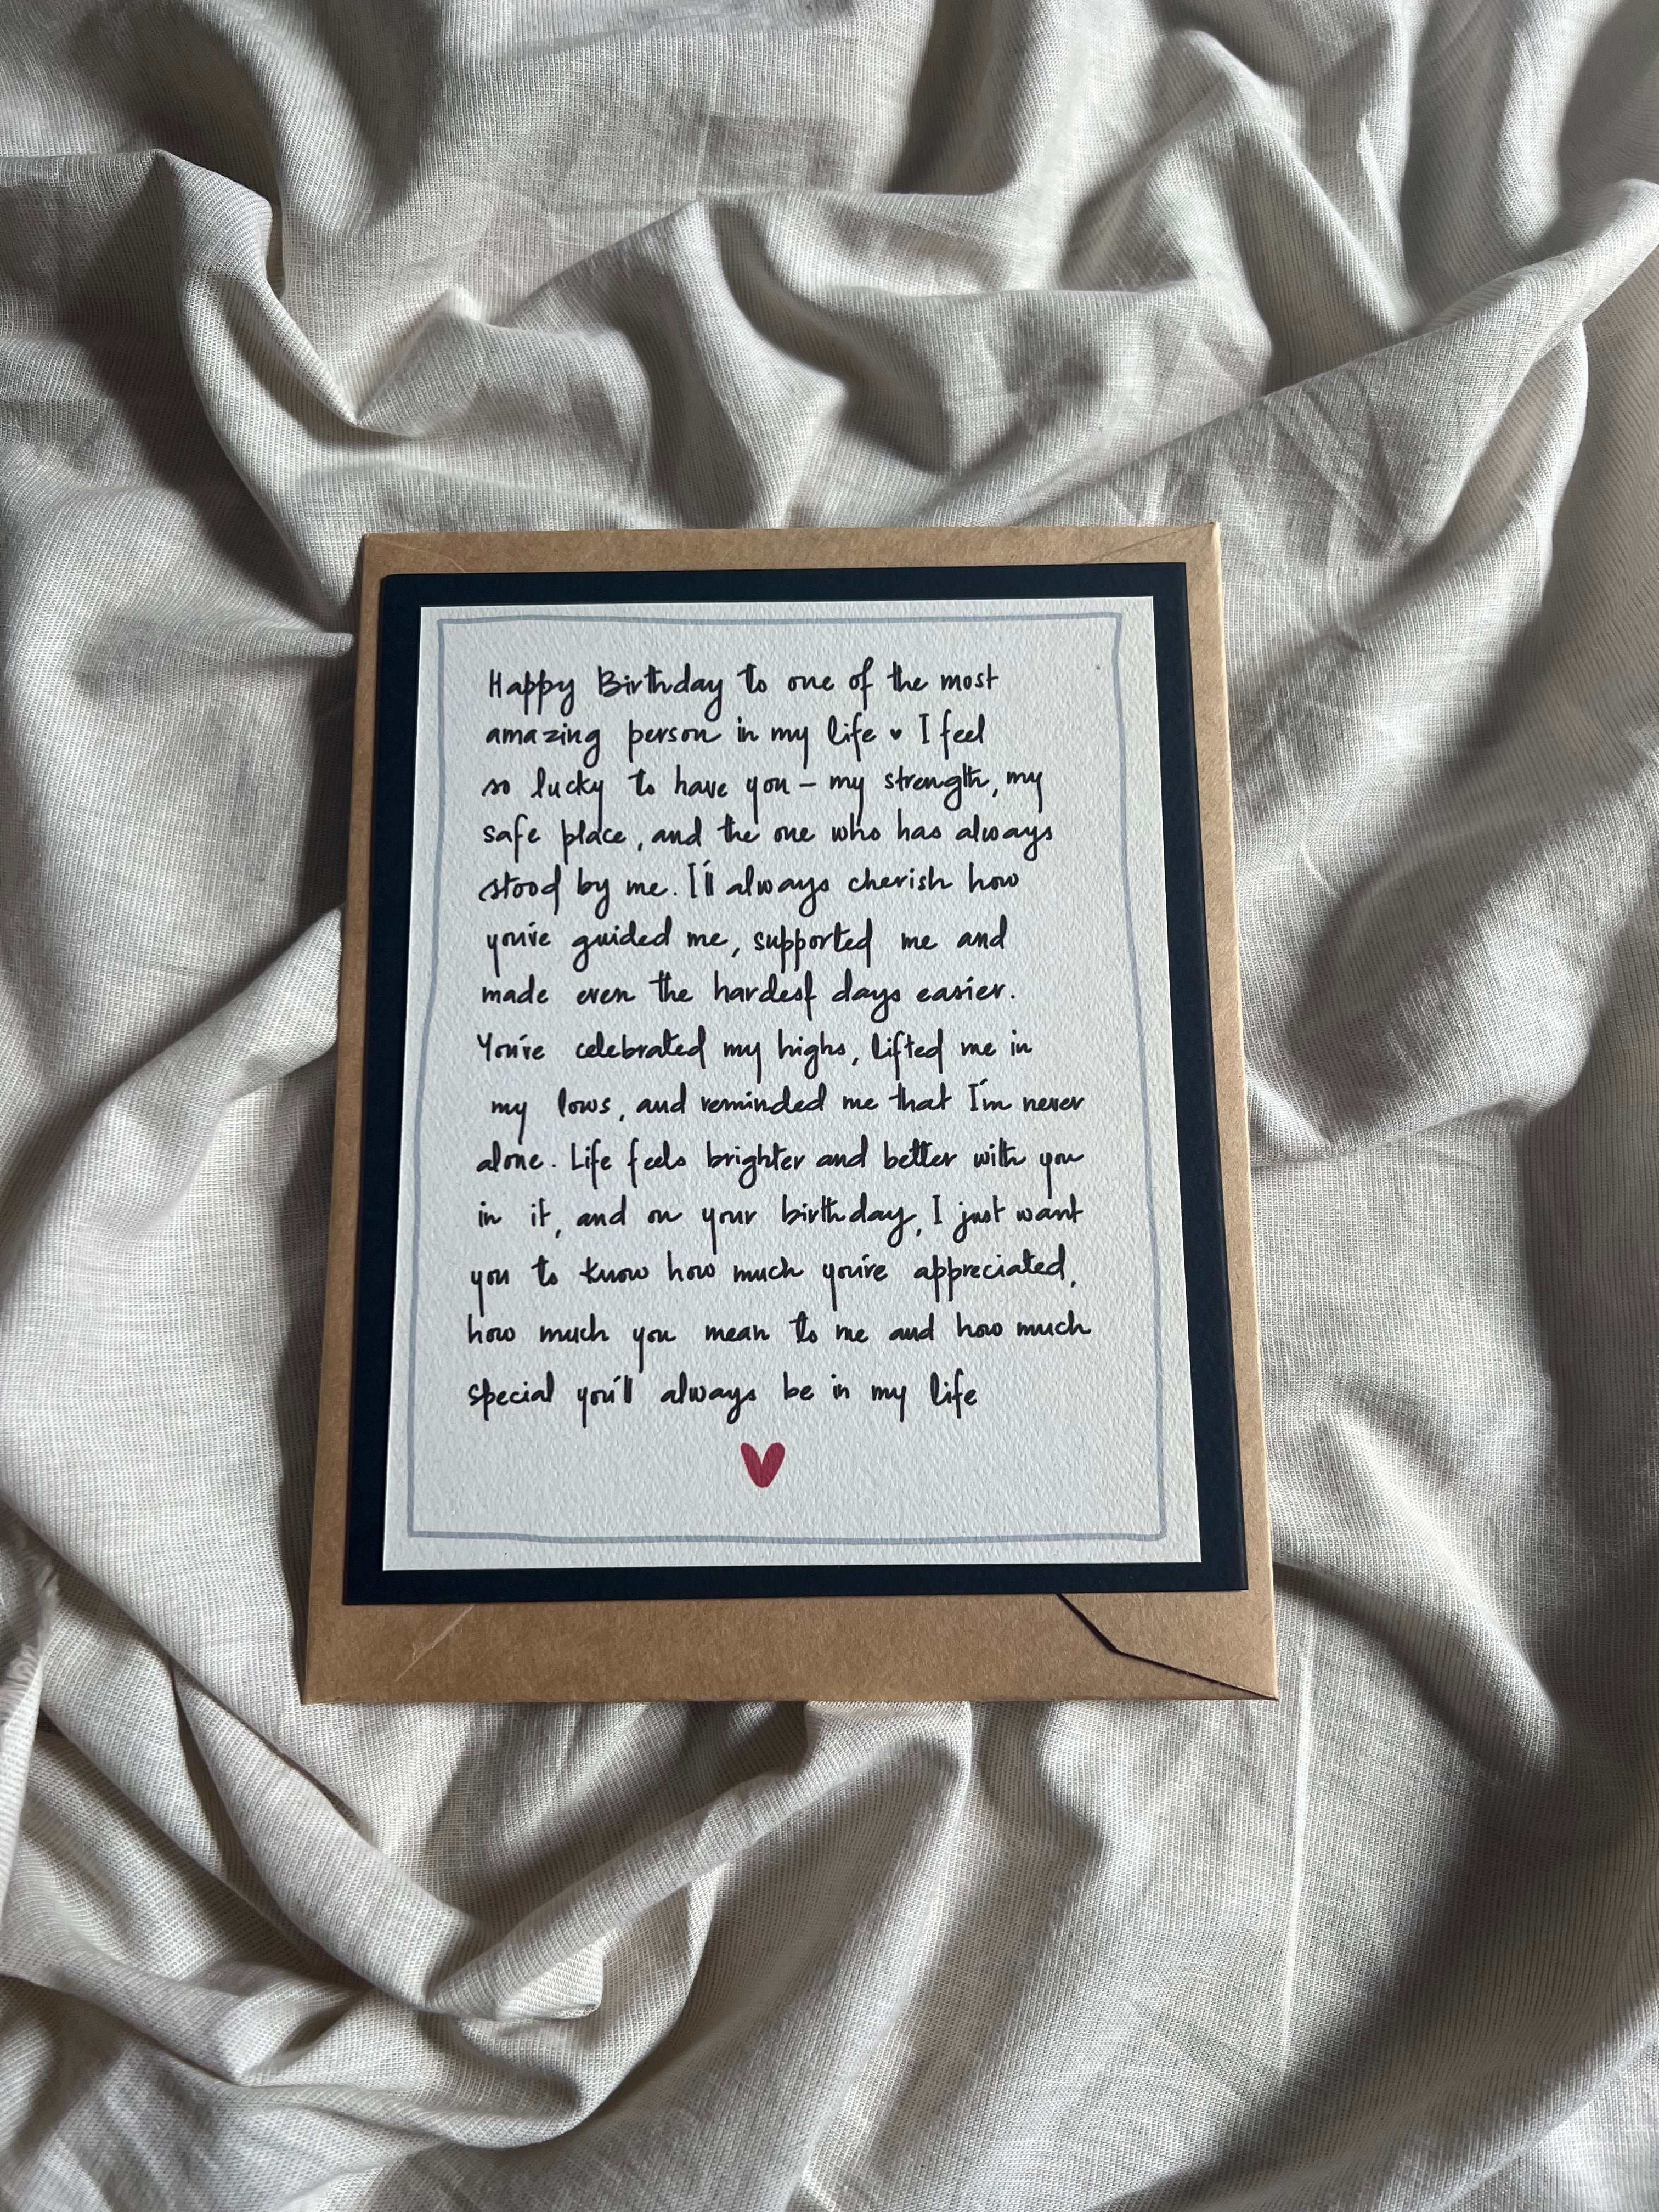 Happy Birthday to one of the most
amazing person in my life ♥ I feel
so lucky to have you – my strength, my
safe place, and the one who has always
stood by me. I'll always cherish how
you've guided me, supported me and
made even the hardest days easier.
You've celebrated my highs, lifted me in
my lows, and reminded me that I'm never
alone. Life feels brighter and better with you
in it, and on your birthday, I just want
you to know how much you're appreciated,
how much you mean to me and how much
special you'll always be in my life